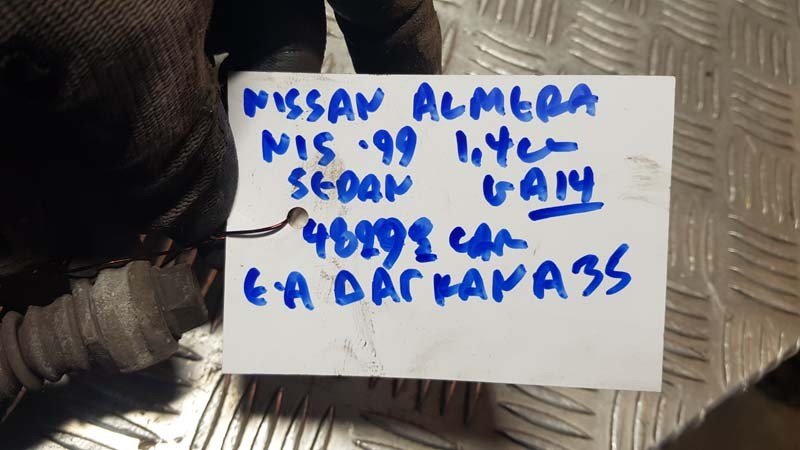 NISSAN ALMERA
N15 .99 1,4cc
SEDAN GA14
CAR
E.A DAGKANA 35